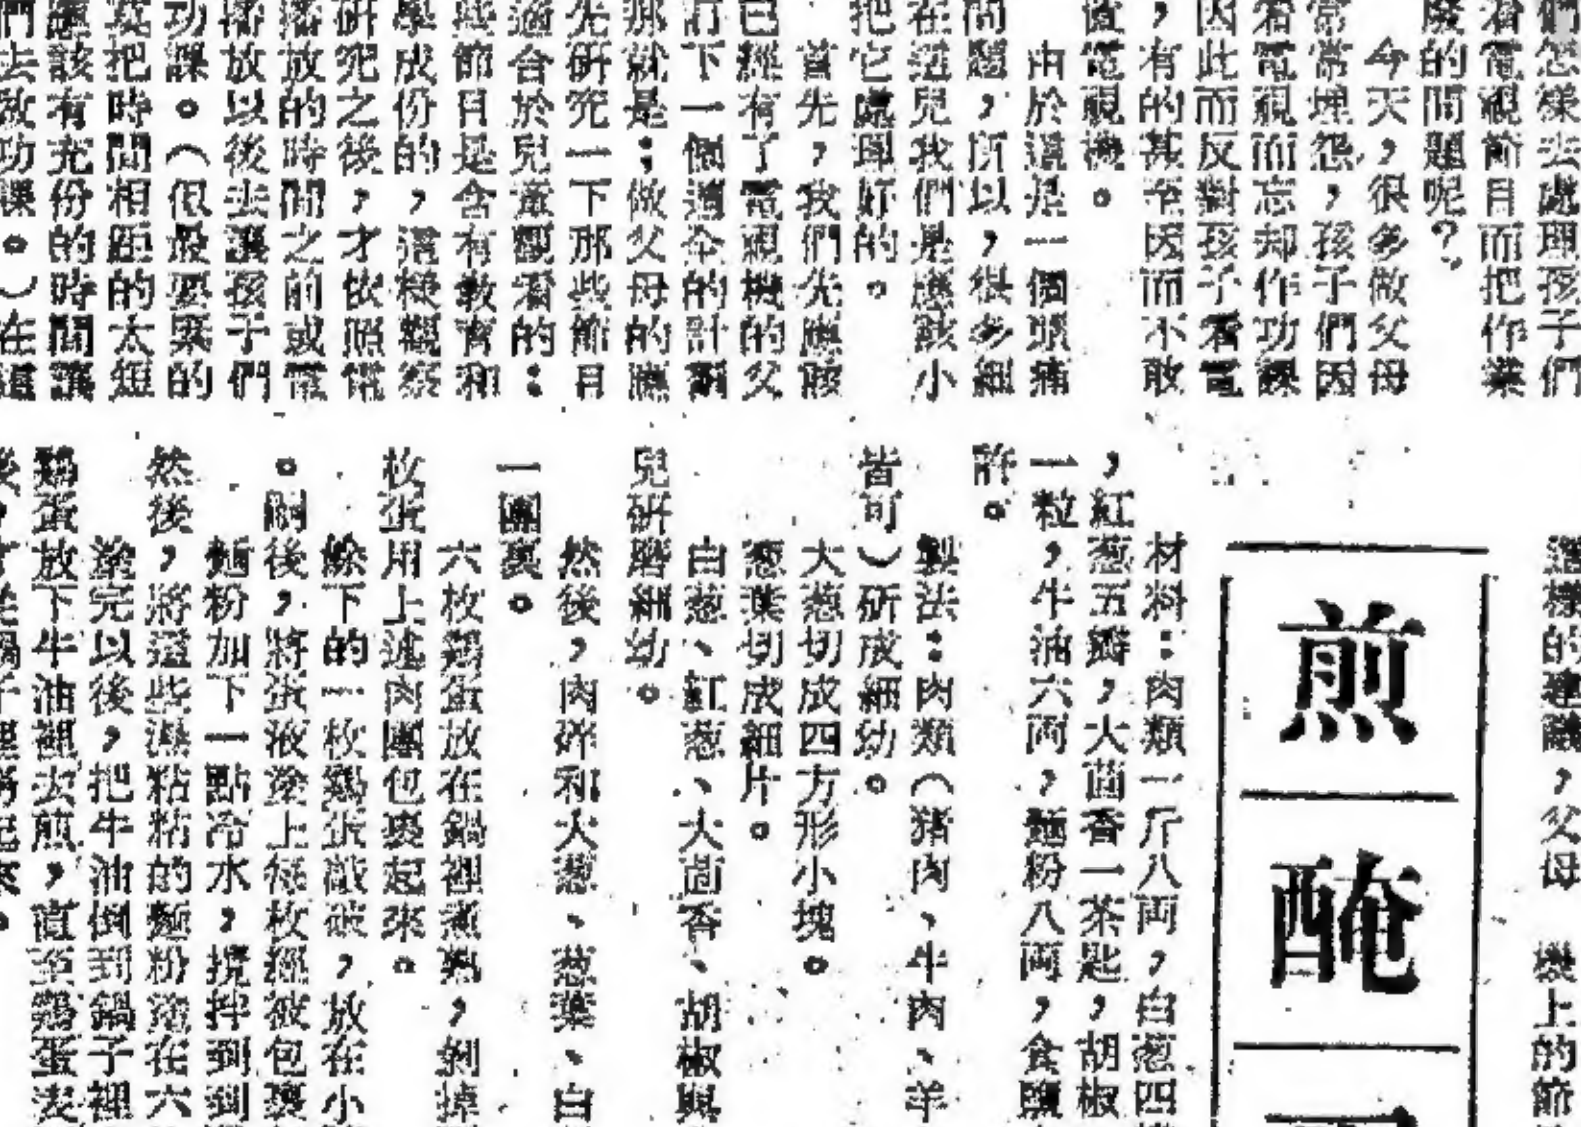 們怎樣去處理孩子們
看電視節目而把作業
廢的問題呢?
今天,很多做父母
常常埋怨,孩子們因
看電視而忘却作功課
因此而反對孩子看電
,有的甚至因而不敢
置電視機。
由於這是一個頭痛
問題,所以,很多細
在這兒我們是應該小
把它處理好的。
首先,我們先應該
已經有了電視機的父
訂下一個適合的計劃
那就是;做父母的應
先研究一下那些節目
適合於兒童觀看的:
些節目是含有教育和
學成份的,這樣觀察
研究之後,才依照電
播放的時間之前或電
播放以後去讓孩子們
功課。(但最要緊的
莫把時間相距的太短
應該有充份的時間讓
們去做功課。)在這
這樣的建議,父母
機上的節
煎
醃
材料:肉類一斤八両,白葱四
,紅葱五瓣,大茴香一茶匙,胡椒
一粒,牛油六両,麵粉八両,食鹽
許。
製法:肉類(猪肉、牛肉、羊
皆可)研成細幼。
大葱切成四方形小塊。
葱葉切成細片。
白葱、紅葱、大茴香、胡椒與
兒研磨細幼。
然後,肉碎和大葱、葱葉、白
一團裏。
六枚鷄蛋放在鍋裡煮熟,剝掉
枚蛋用上述肉團包裹起來。
餘下的一枚鷄蛋敲破,放在小
。嗣後,將蛋液塗上每枚經被包裹
麵粉加下一點冷水,攪拌到到
然後,將這些濕粘粘的麵粉塗在六
塗完以後,把牛油倒到鍋子裡
鷄蛋放下牛油裡去煎,直至鷄蛋表